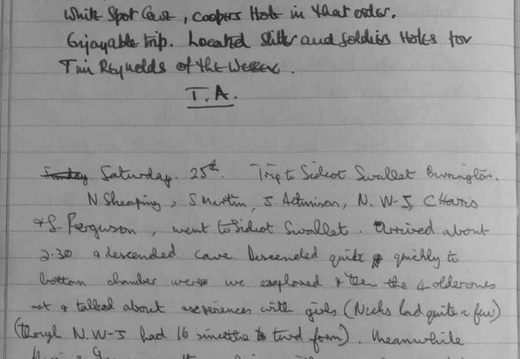 White Spot Cave, Coopers Hole in that order.
Enjoyable trip. Located Slitter and Soldiers Holes for
Tim Reynolds of the Wessex.
T.A.
Sunday Saturday. 25th. Trip to Sidcot Swallet Burrington.
N Shearing, S Martin, J. N. W-J, C Harris
& S. Ferguson, went to Sidcot Swallet. Arrived about
2.30 & descended cave. Descended quite quickly to
bottom chamber we explored & then the 4 older ones
sat & talked about experiences with girls (Nicks had quite a few)
(though N.W-J had 16 since the third form). Meanwhile